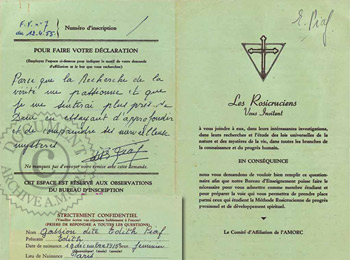 F.P. n° 7
du 12.4.55.
Numéro d'inscription
POUR FAIRE VOTRE DÉCLARATION
(Employez l'espace ci-dessous pour indiquer le motif de votre demande
d'affiliation et le but que vous recherchez)
Parce que la Recherche de la
vérité me passionne et que
je me sentirai plus près de
Dieu en essayant d'approfondir
et de comprendre ses merveilleux
mystères
Edith Piaf
Ne manquez pas d'envoyer votre demande
CET ESPACE EST RÉSERVÉ AUX OBSERVATIONS
DU BUREAU D'INSCRIPTION
STRICTEMENT CONFIDENTIEL
(PRIÈRE DE RÉPONDRE A TOUTES LES QUESTIONS)
Nom Gassion dite Edith Piaf
Prénoms Edith
Date de naissance 19 dec 1915 féminin
Lieu de naissance Paris
ARCHIVE
E. Piaf
Les Rosicruciens
Vous Invitent
à vous joindre à eux, dans leurs intéressantes investigations,
dans leurs recherches et l'étude des lois universelles de la
nature et des mystères de la vie, dans toutes les branches de
connaissance et du progrès humain.
EN CONSÉQUENCE
nous vous demandons de vouloir bien remplir ce question-
naire afin que notre Bureau d'Enseignement puisse faire le
nécessaire pour vous admettre comme membre étudiant et
pour préparer la voie qui vous permettra de prendre place
parmi ceux qui étudient la Méthode Rosicrucienne de progrès
personnel et de développement spirituel.
Le Comité d'Affiliation de l'AMORC